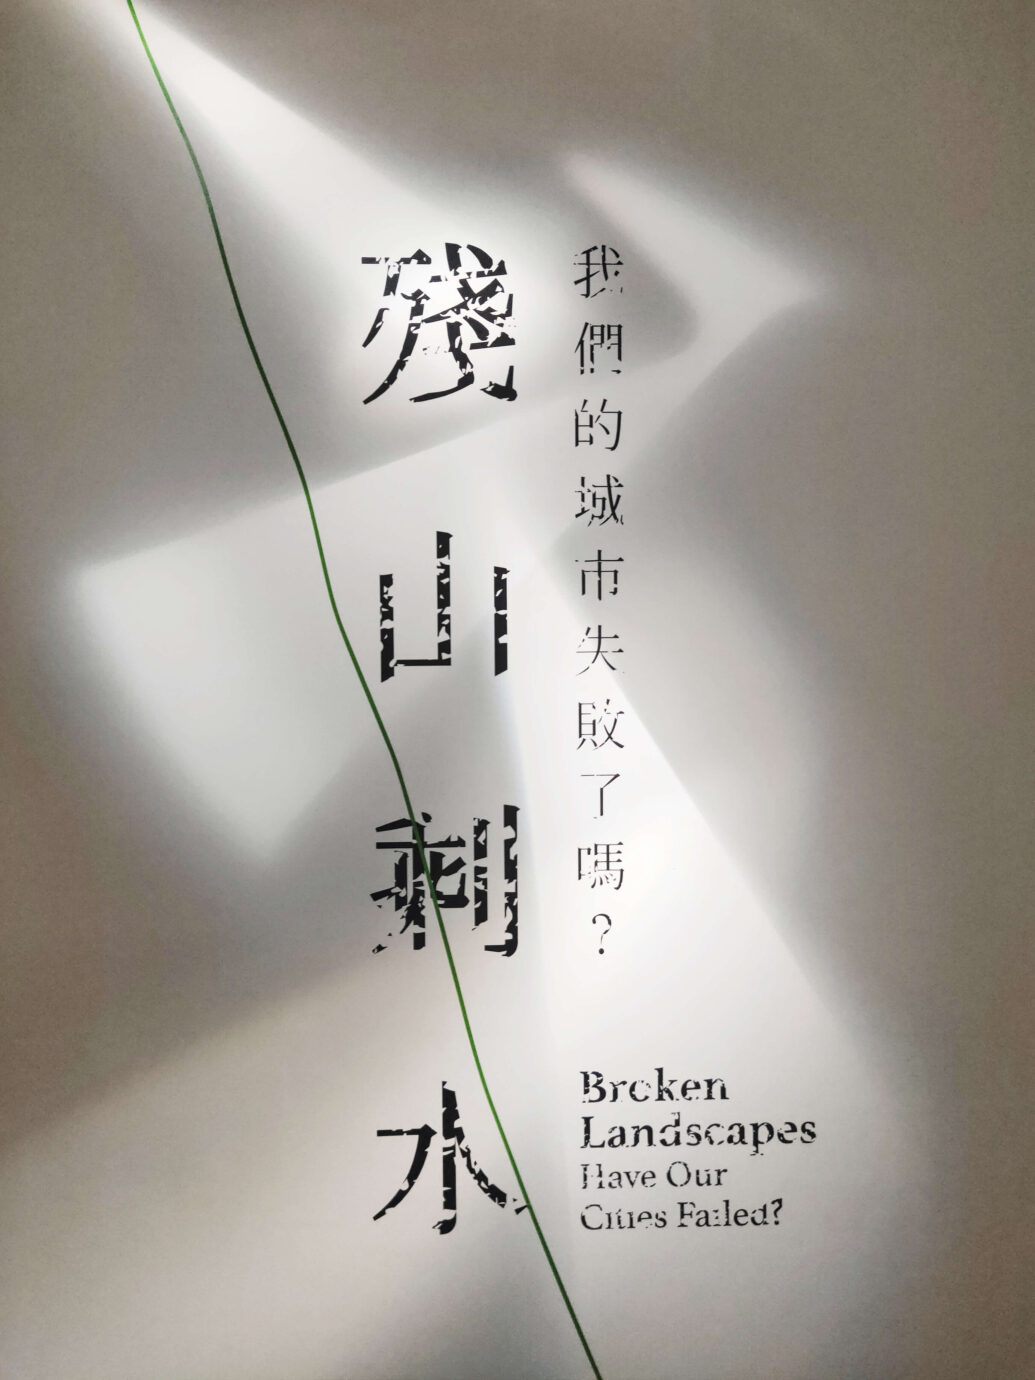 殘山剩水
我們的城市失敗了嗎？
Broken
Landscapes
Have Our
Cities Failed?